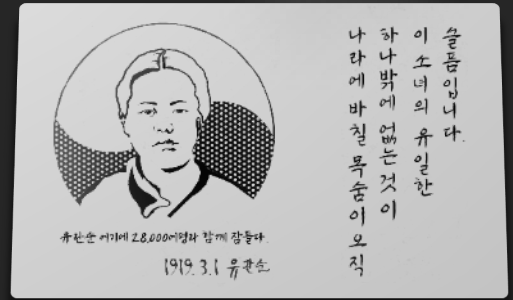 나라에 바칠 목숨이 오직
하나밖에 없는것이
이 소녀의 유일한
슬픔입니다.
유관순 여기에 28,000여명과 함께 잠들다.
1919. 3. 1 유관순